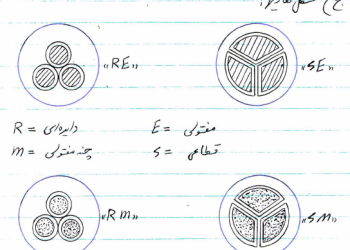 «RE» «SE»
R = دایره‌ای E = مفتولی
m = چند مفتولی S = قطاعی
«Rm» «SM»